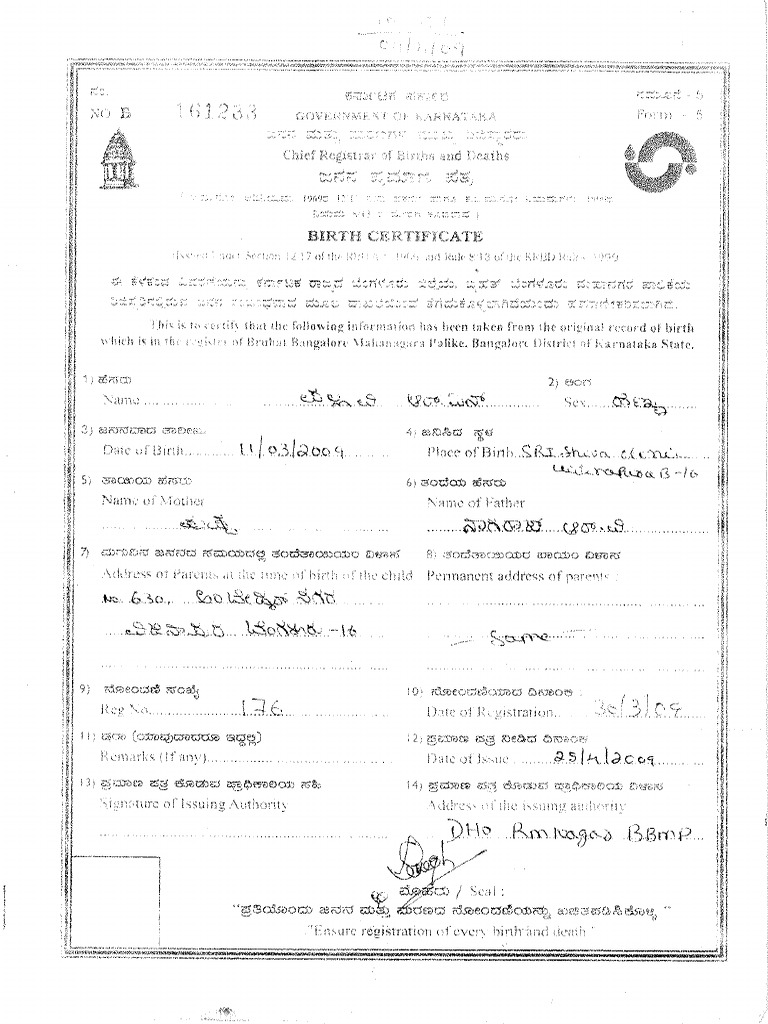 ನಂ.
NO B 161233
ಕರ್ನಾಟಕ ಸರ್ಕಾರ
GOVERNMENT OF KARNATAKA
ನಮೂನೆ - 5
Form - 5
ಜನನ ಮತ್ತು ಮರಣಗಳ ಮುಖ್ಯ
Chief Registrar of Births and Deaths
ಜನನ ಪ್ರಮಾಣ ಪತ್ರ
BIRTH CERTIFICATE
(Issued Under Section 12/17 of the and Rule 8/13 of the RBD Rules 1999
ಈ ಕೆಳಕಂಡ ವಿವರಣೆಯನ್ನು ಕರ್ನಾಟಕ ರಾಜ್ಯದ ಬೆಂಗಳೂರು ಜಿಲ್ಲೆಯ, ಬೃಹತ್ ಬೆಂಗಳೂರು ಮಹಾನಗರ ಪಾಲಿಕೆಯ
ರಿಜಿಸ್ಟರಿನಲ್ಲಿರುವ ಜನನ ಮೂಲ ದಾಖಲೆಯಿಂದ ತೆಗೆದುಕೊಳ್ಳಲಾಗಿದೆಯೆಂದು
This is to certify that the following information has been taken from the original record of birth
which is in the register of Bruhat Bangalore Mahanagara Palike, Bangalore District of Karnataka State.
1) ಹೆಸರು
Name
2) ಲಿಂಗ
Sex ಹೆಣ್ಣು
3) ಜನನವಾದ ತಾರೀಖು
Date of Birth 11/03/2009
4) ಜನಿಸಿದ ಸ್ಥಳ
Place of Birth SRI Shiva Clinic
B-16
5) ತಾಯಿಯ ಹೆಸರು
Name of Mother
6) ತಂದೆಯ ಹೆಸರು
Name of Father
ನಾಗರಾಜ ಆರ್.ವಿ
7) ಮಗುವಿನ ಜನನದ ಸಮಯದಲ್ಲಿ ತಂದೆತಾಯಿಯರ ವಿಳಾಸ
Address of Parents at the time of birth of the child
8) ತಂದೆತಾಯಿಯರ ಖಾಯಂ ವಿಳಾಸ
Permanent address of parents :
No 630, ಅಂಬೇಡ್ಕರ್ ನಗರ
ವಿಜಿನಾಪುರ ಬೆಂಗಳೂರು -16
Same
9) ನೋಂದಣಿ ಸಂಖ್ಯೆ
Reg No. 176
10) ನೋಂದಣಿಯಾದ ದಿನಾಂಕ :
Date of Registration 30/3/09
11) ಷರಾ (ಯಾವುದಾದರೂ ಇದ್ದಲ್ಲಿ)
Remarks (If any)
12) ಪ್ರಮಾಣ ಪತ್ರ ನೀಡಿದ ದಿನಾಂಕ
Date of Issue 25/4/2009
13) ಪ್ರಮಾಣ ಪತ್ರ ಕೊಡುವ ಪ್ರಾಧಿಕಾರಿಯ ಸಹಿ
Signature of Issuing Authority
14) ಪ್ರಮಾಣ ಪತ್ರ ಕೊಡುವ ಪ್ರಾಧಿಕಾರಿಯ ವಿಳಾಸ
Address of the issuing authority
DHO Rm Nagar BBMP
ಮೊಹರು / Seal :
"ಪ್ರತಿಯೊಂದು ಜನನ ಮತ್ತು ಮರಣದ ನೋಂದಣಿಯನ್ನು ಖಚಿತಪಡಿಸಿಕೊಳ್ಳಿ"
"Ensure registration of every birth and death"